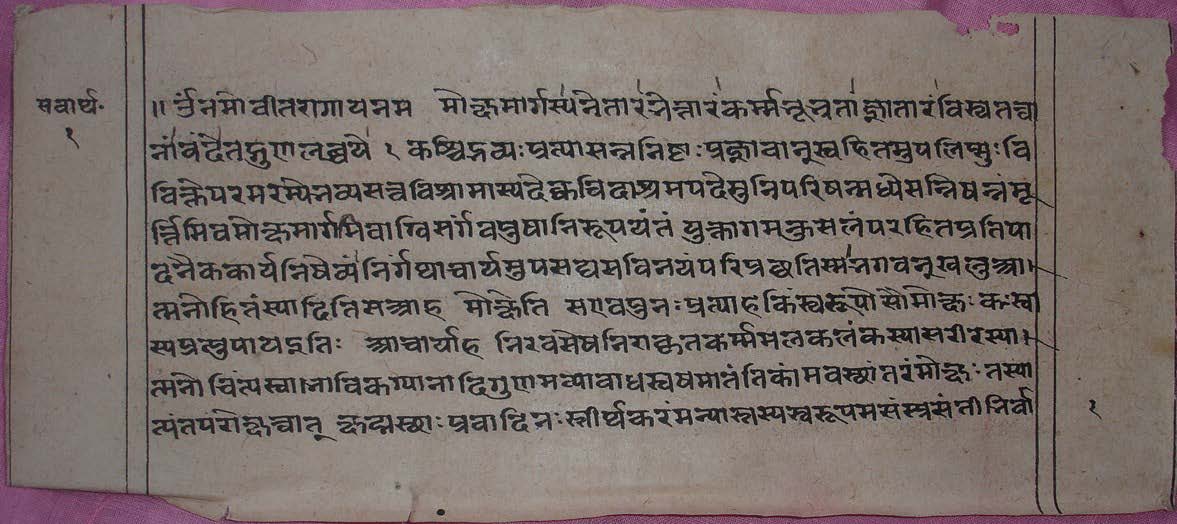 सवार्थ॰
१
॥ र्नुंनमोवीतरागायनम मोक्षमार्गस्यनेतारंनेत्तारंकर्म्मनूनृतांज्ञातारंविस्वतत्वा
नांवंदेतद्गुणलब्धये १ कश्चिद्भव्यःप्रत्यासन्ननिष्टःप्रज्ञावानूस्वहितमुपलिप्सुःवि
विक्तेपरमरम्येनव्यसत्वविश्रामास्यदेक्वचिदाश्रमपदेमुनिपरिषन्मध्येसन्निषन्नंमू
र्त्तिमिवमोक्षमार्गमिवाग्विसर्गंवपुषानिरूपयंतं युक्तागमकुसलंपरहितप्रतिपा
दनैककार्यनिषेव्यंनिर्गंथाचार्यमुपसद्यसविनयंपरिप्रछतिस्मनगवनूखलुआ
त्मनोहितंस्यादितिसआह मोक्षेति सएवपुनःप्रत्याहकिंस्वरूपोसौमोक्षःकःस्व
स्यप्रत्सुपायइतिः आचार्याह निरवसेषनिराकृतकर्ममलकलंकस्यासरीरस्या
त्मनोचिंत्यस्वानाविकग्यानादिगुणमव्याबाधस्वषमातंतिकांमवस्छांतरंमोक्षःतस्या
त्यंतपरोक्षत्वात् छद्मस्छाःप्रवादिनःस्तीर्थकरंमन्यास्तस्यस्वरूपमसंस्प्रसंतीनिर्वा
१